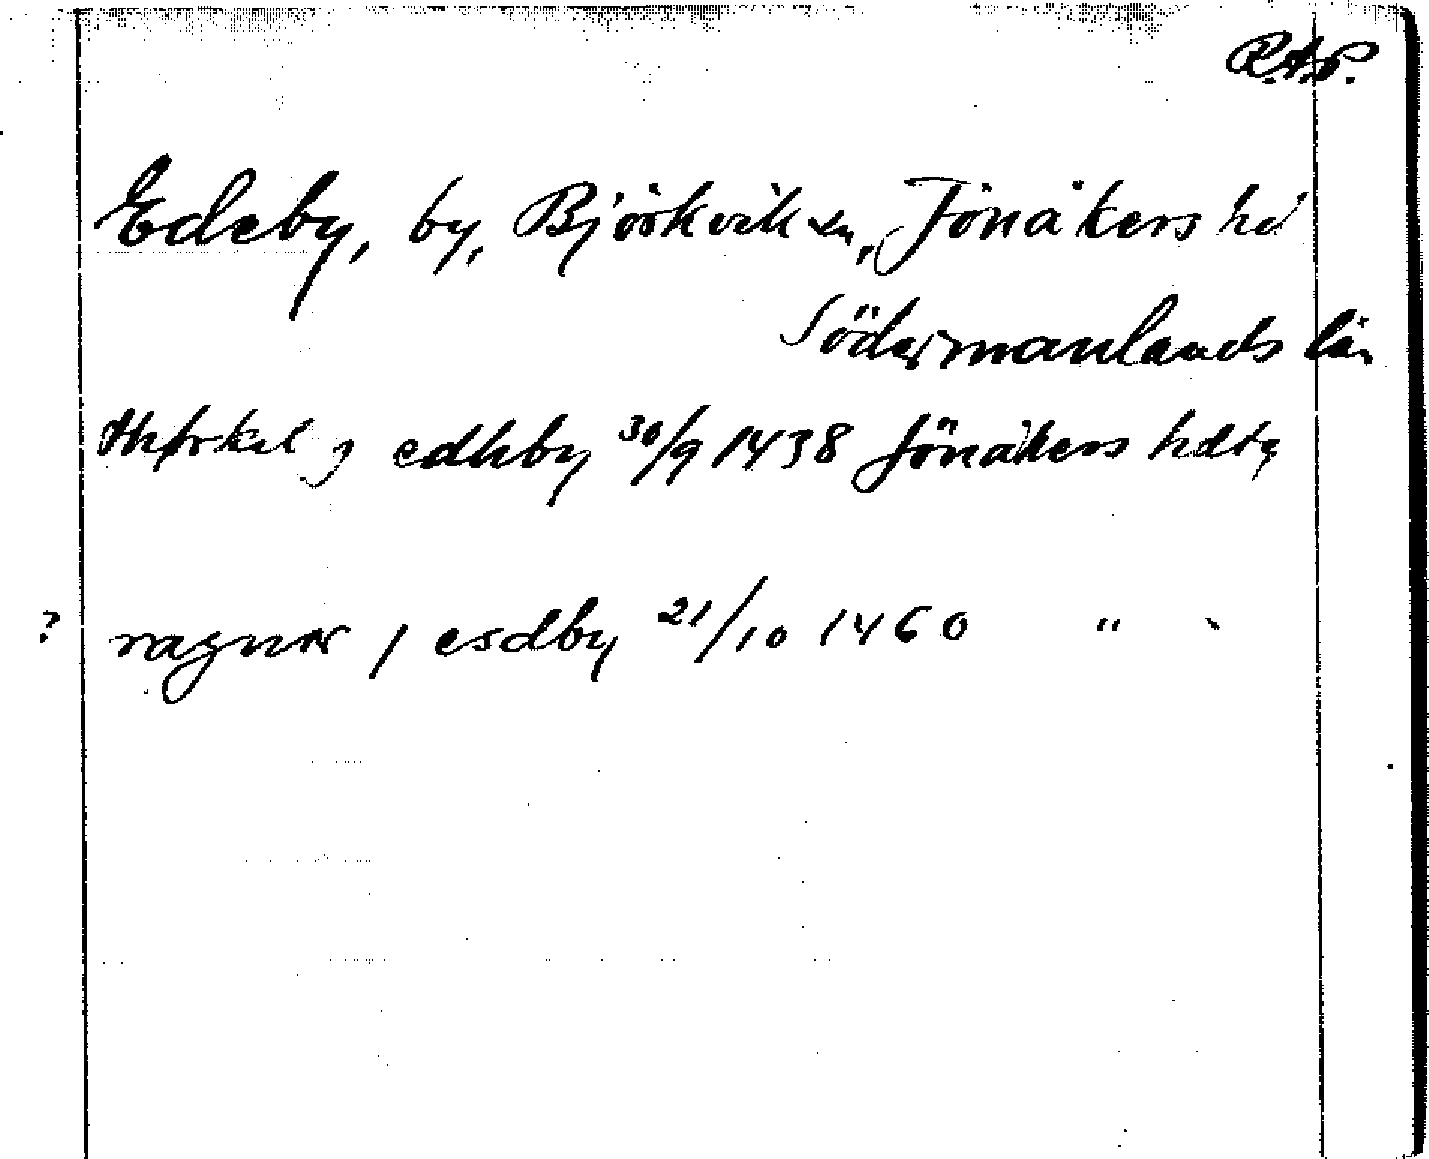 R.A.P.
Edeby, by, Björkvik sn, Jönåkers hd
Södermanlands län
thorkel j edhby 30/9 1438 Jönåkers hd
? ragnar j esdby 21/10 1460 " "